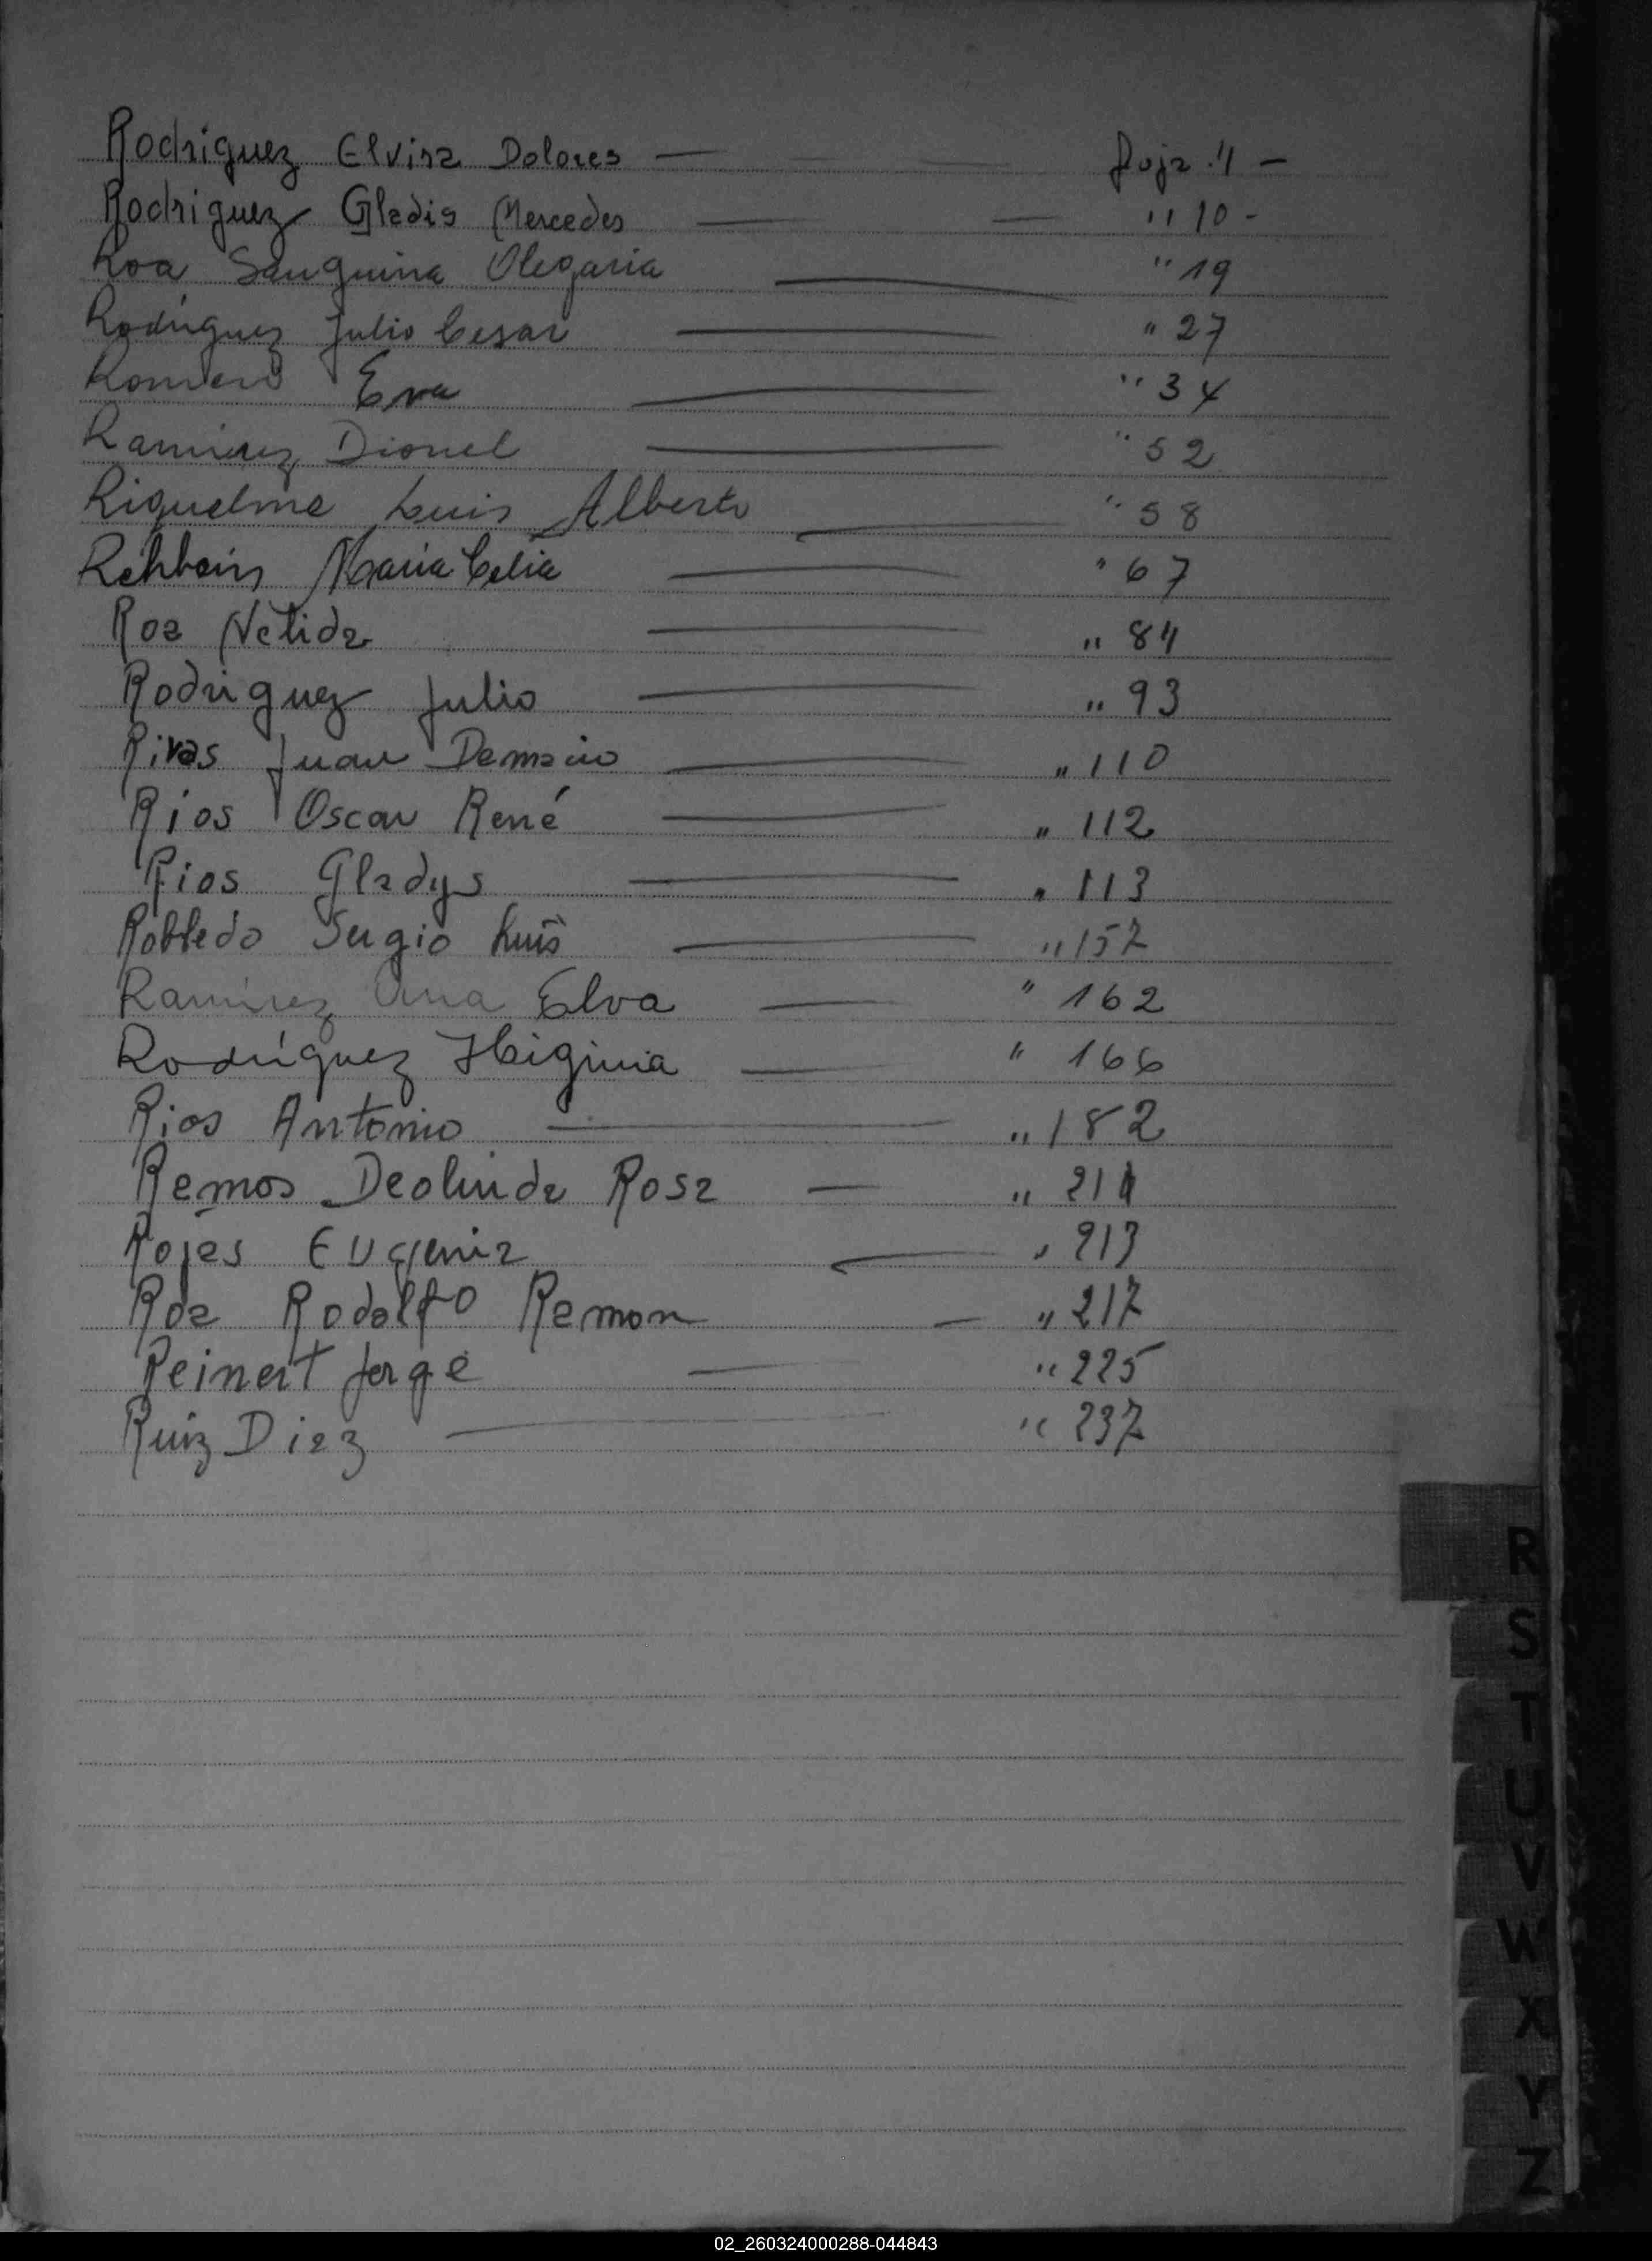 Rodriguez Elvira Dolores — foja 4 —
Rodriguez Gladis Mercedes — — " 10 -
Roa Sanguina Olegaria — " 19
Rodriguez Julio Cesar — " 27
Romero Eva — " 34
Ramirez Dionel — " 52
Riquelme Luis Alberto — " 58
Rehbein Maria Celia — " 67
Roa Nélida — " 84
Rodriguez Julio — " 93
Rivas Juan Damacio — " 110
Rios Oscar René — " 112
Rios Gladys — " 113
Robledo Sergio Luis — " 157
Ramirez Ana Elva — " 162
Rodríguez Higinia — " 166
Rios Antonio — " 182
Ramos Deolinda Rosa — " 211
Rojas Eugenia — " 213
Roa Rodolfo Ramon — " 217
Reinert Jorge — " 225
Ruiz Diaz — " 237
R
S
T
U
V
W
X
Y
Z
02_260324000288-044843